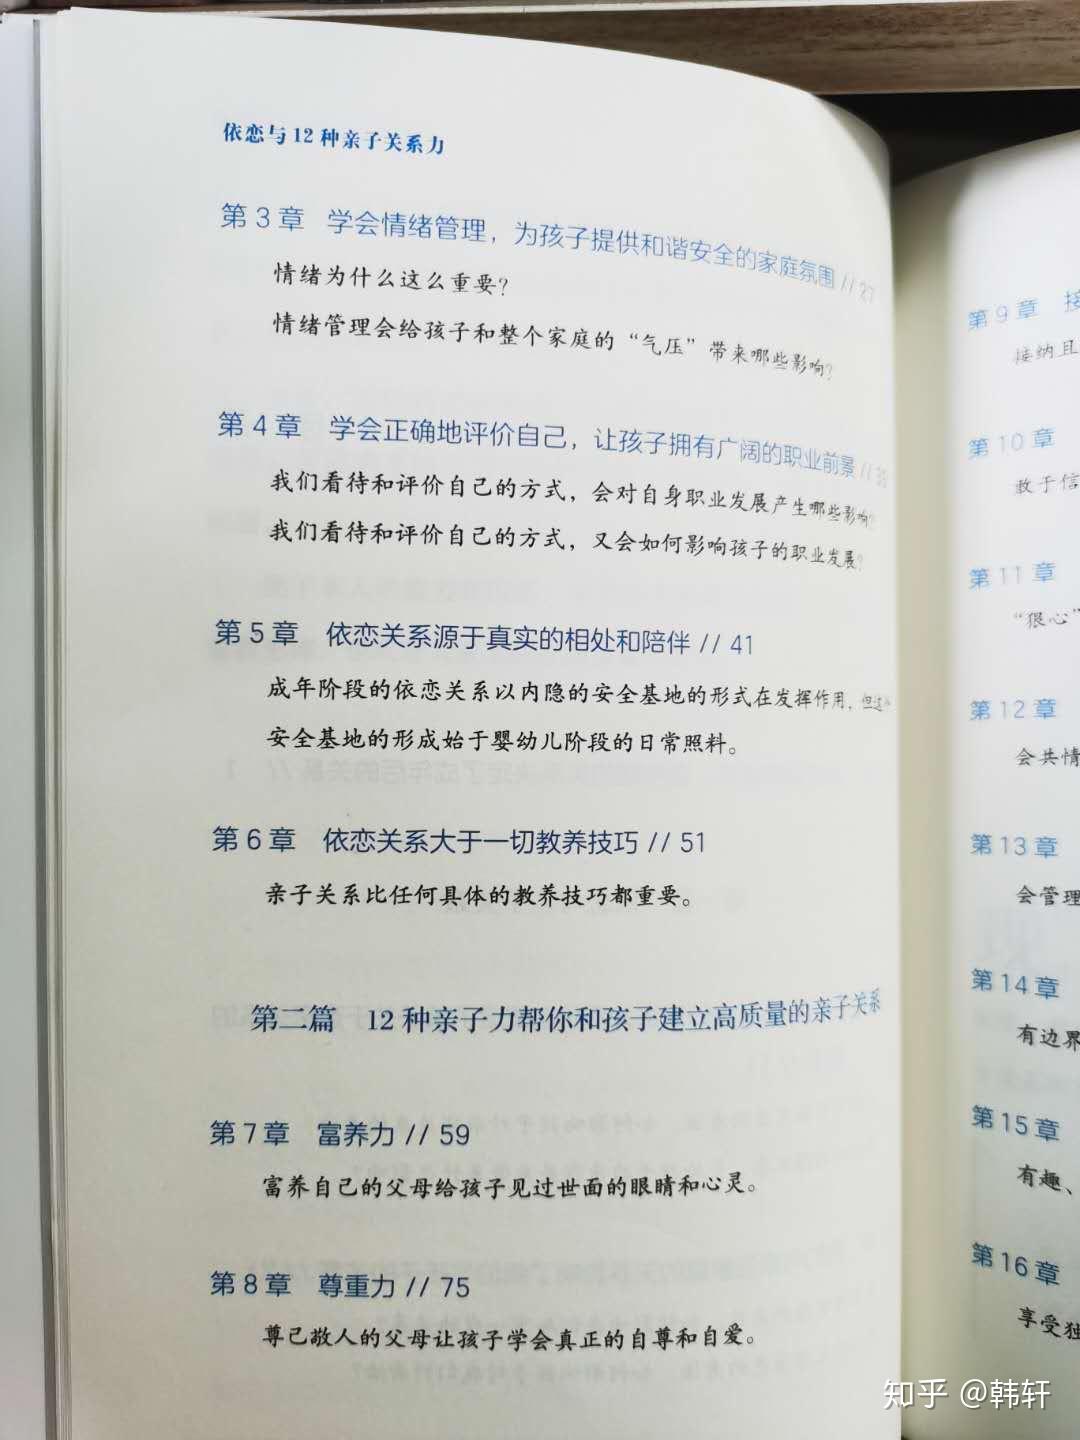 依恋与12种亲子关系力
第3章 学会情绪管理，为孩子提供和谐安全的家庭氛围 // 27
情绪为什么这么重要？
情绪管理会给孩子和整个家庭的“气压”带来哪些影响？
第4章 学会正确地评价自己，让孩子拥有广阔的职业前景 //
我们看待和评价自己的方式，会对自身职业发展产生哪些影响？
我们看待和评价自己的方式，又会如何影响孩子的职业发展？
第5章 依恋关系源于真实的相处和陪伴 // 41
成年阶段的依恋关系以内隐的安全基地的形式在发挥作用，但这
安全基地的形成始于婴幼儿阶段的日常照料。
第6章 依恋关系大于一切教养技巧 // 51
亲子关系比任何具体的教养技巧都重要。
第二篇 12种亲子力帮你和孩子建立高质量的亲子关系
第7章 富养力 // 59
富养自己的父母给孩子见过世面的眼睛和心灵。
第8章 尊重力 // 75
尊己敬人的父母让孩子学会真正的自尊和自爱。
第9章 接
接纳且
第10章
敢于信
第11章
“狠心”
第12章
会共情
第13章
会管理
第14章
有边界
第15章
有趣、
第16章
享受独
知乎 @韩轩